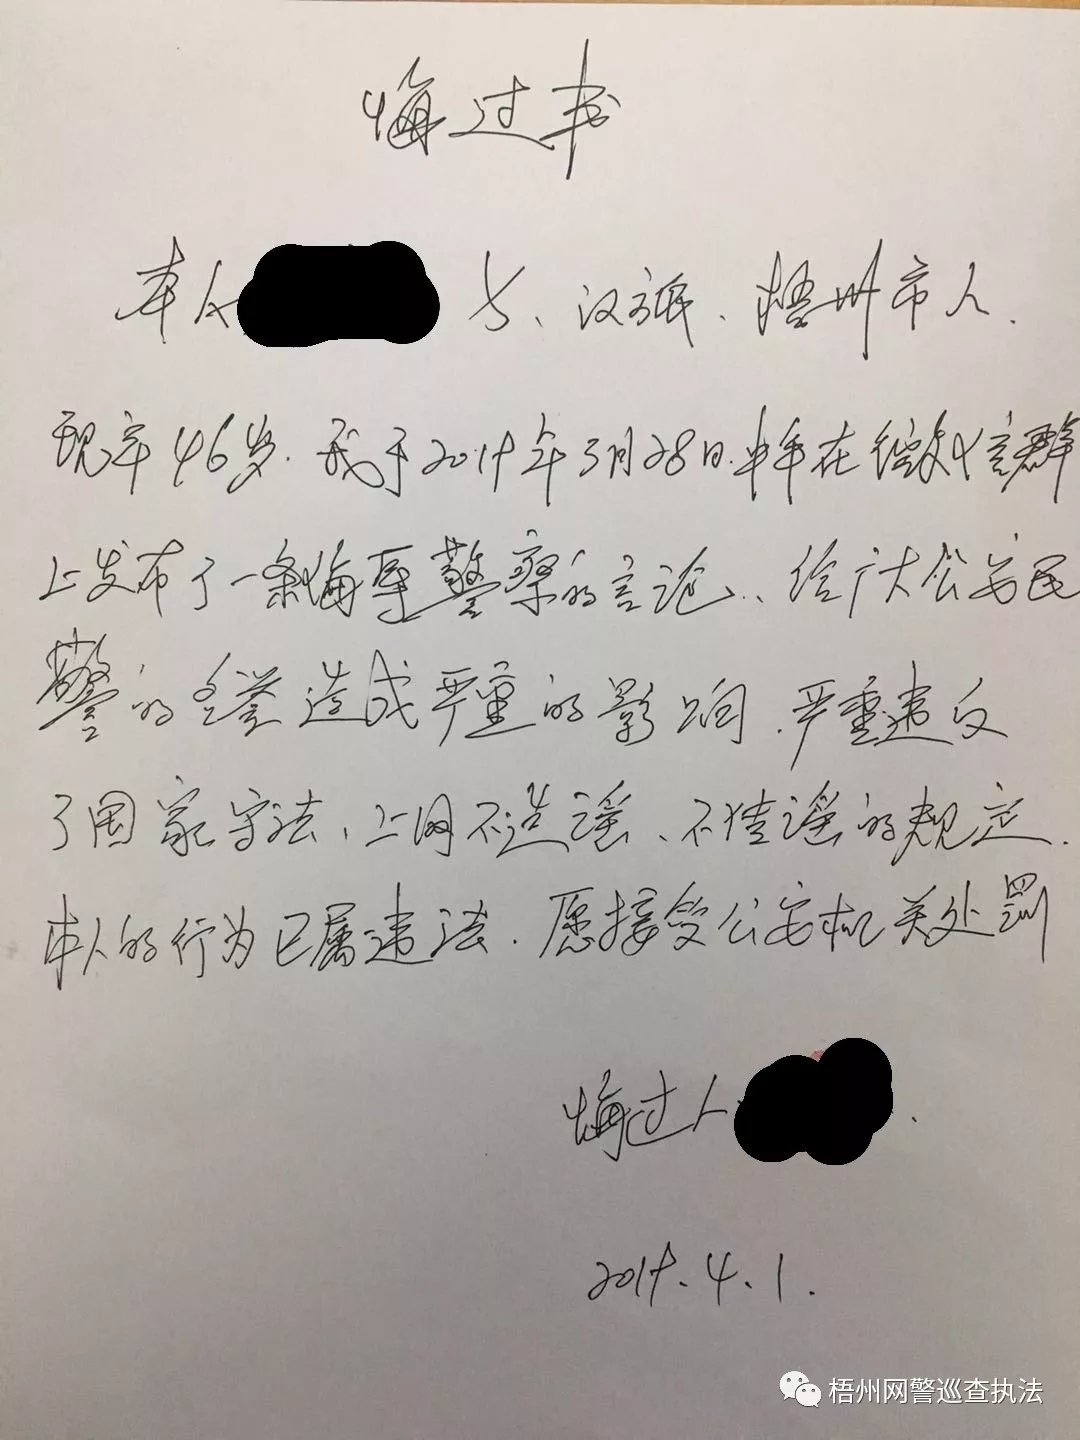 悔过书
本人 女、汉族、梧州市人.
现年46岁.我于2019年3月28日中午在微信群
上发布了一条侮辱警察的言论.、给广大公安民
警的名誉造成严重的影响.严重违反
了国家守法、上网不造谣、不传谣的规定.
本人的行为已属违法.愿接受公安机关处罚
悔过人 .
2019.4.1.
梧州网警巡查执法